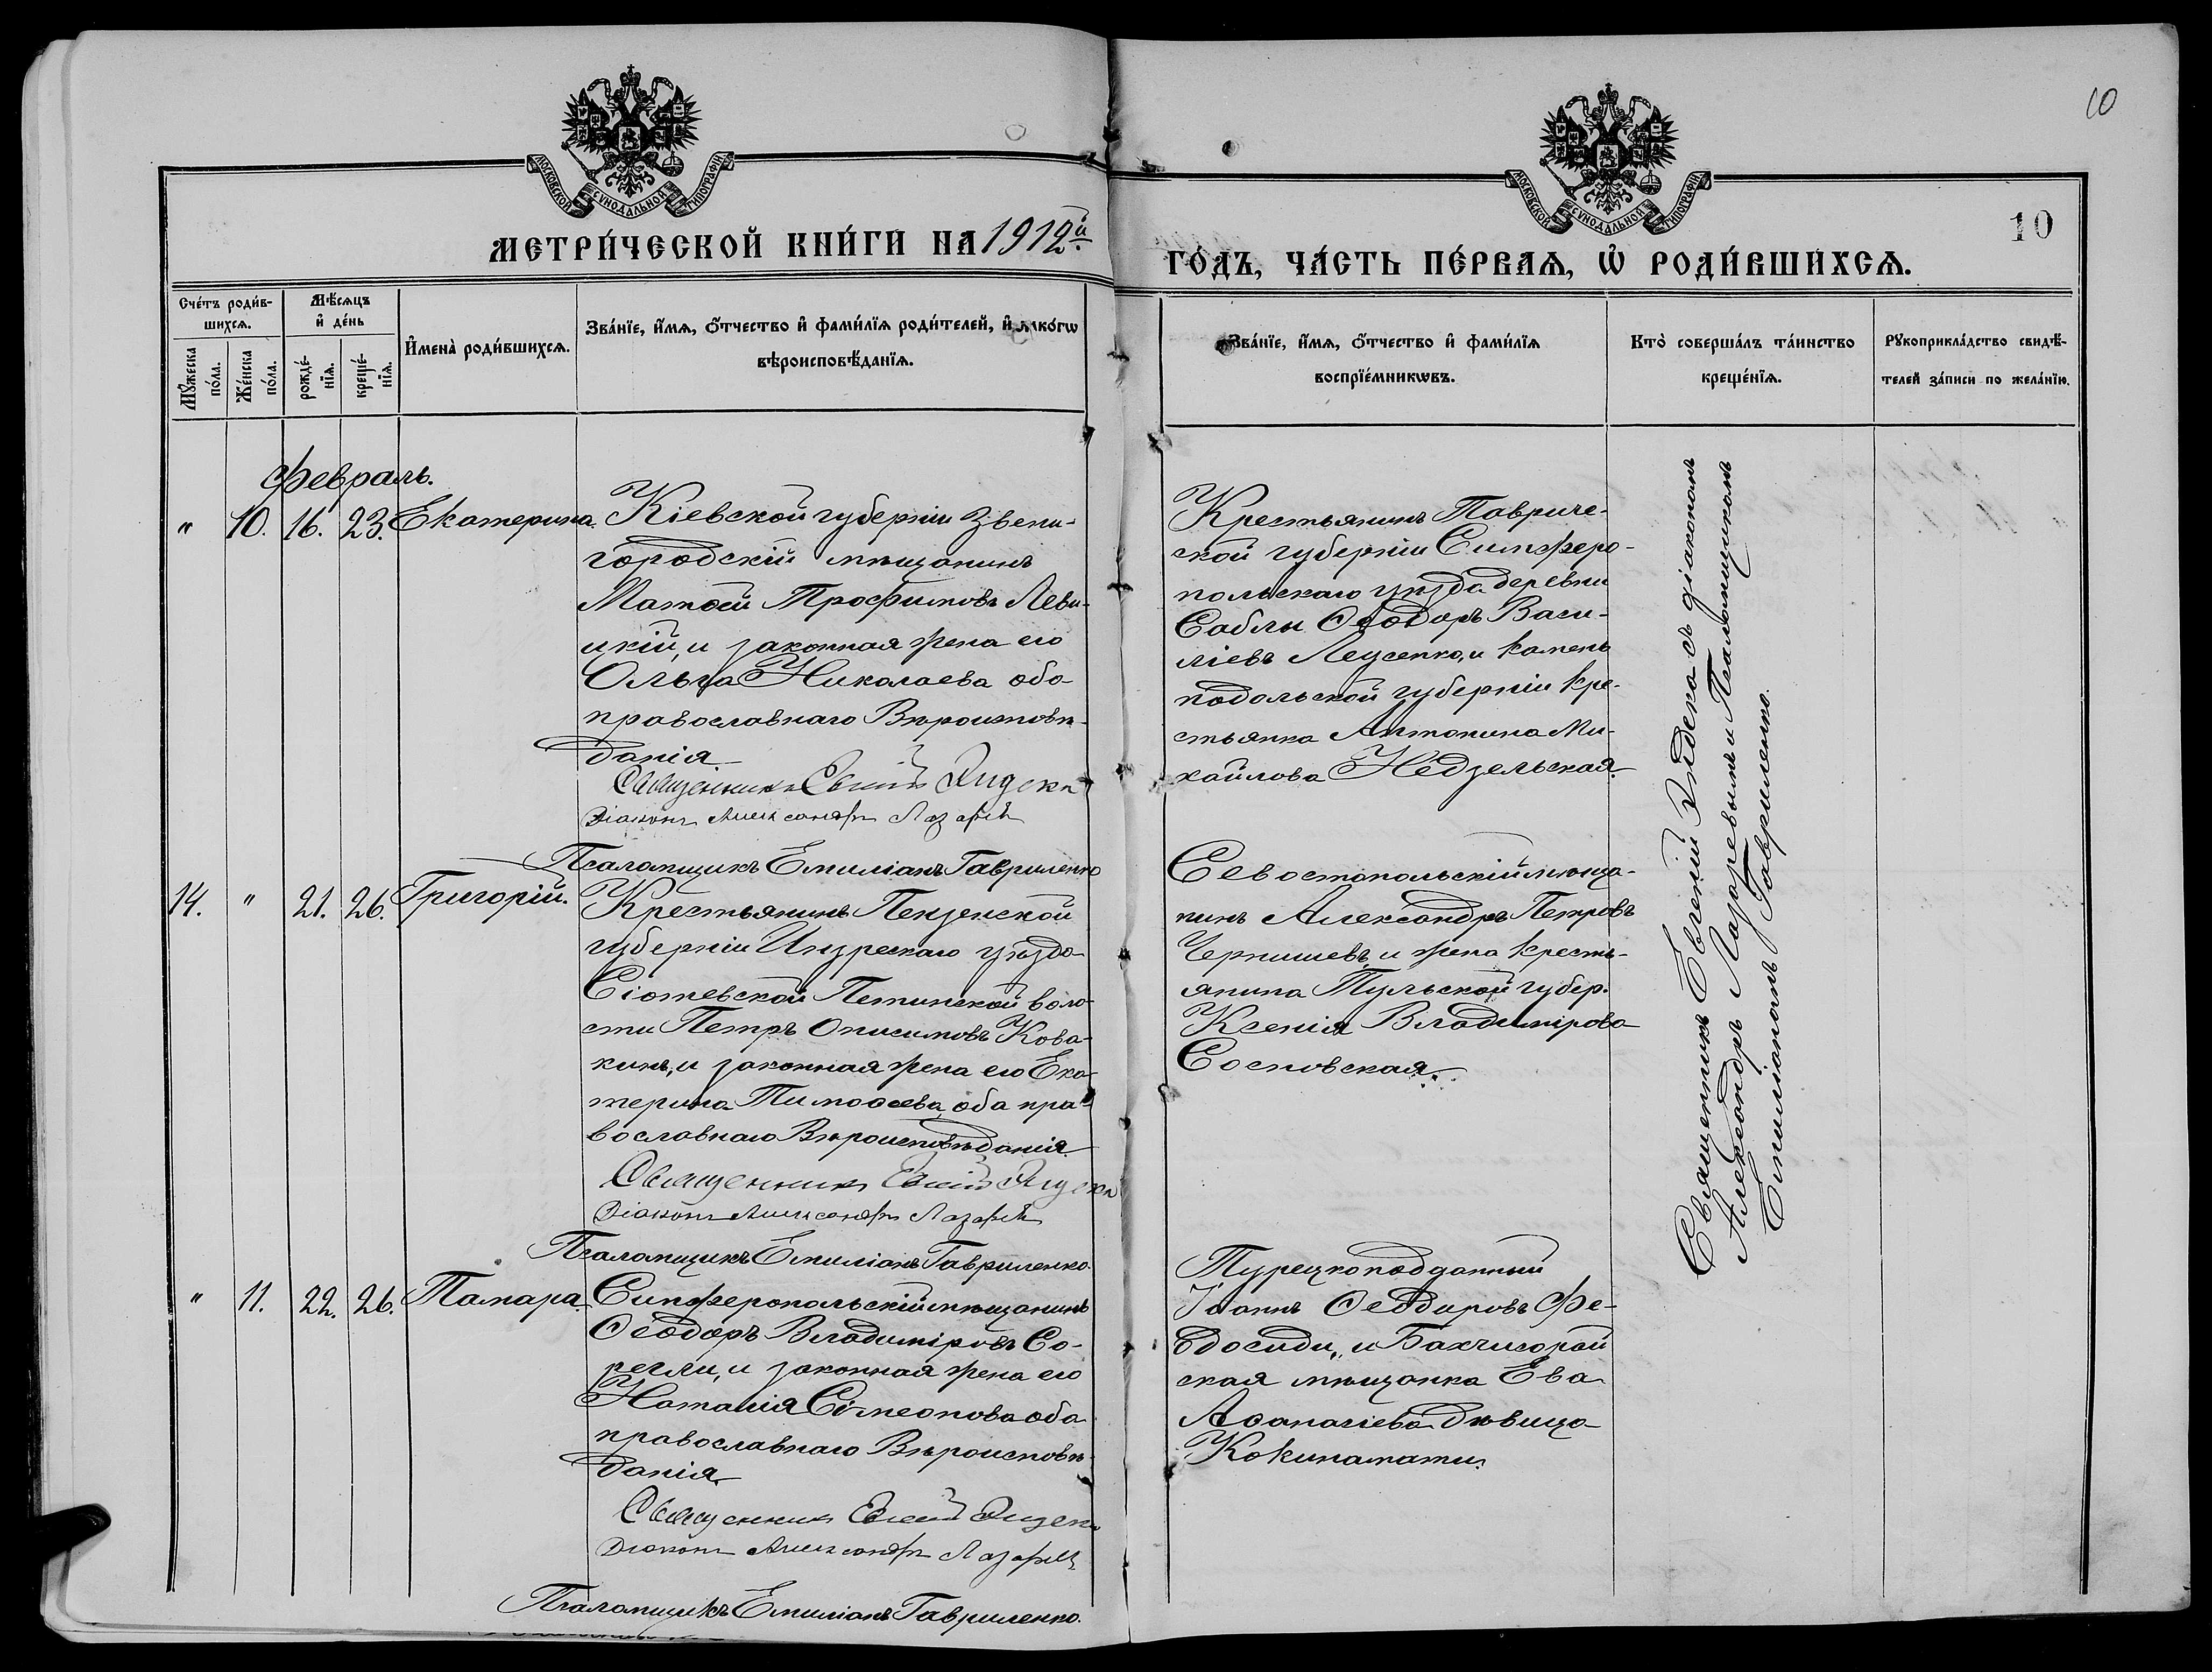 10
МОСКОВСКОЙ СѴНОДАЛЬНОЙ ТИПОГРАФІИ
МОСКОВСКОЙ СѴНОДАЛЬНОЙ ТИПОГРАФІИ
10
МЕТРИ́ЧЕСКОЙ КНИ́ГИ НА 1912й
ГО́ДЪ, ЧА́СТЬ ПЕ́РВАѦ, Ѡ҆ РОДИ́ВШИХСѦ.
Сче́тъ роди́в-
шихсѧ.
Мꙋ́жеска по́ла.
Же́нска по́ла.
Мѣ́сѧцъ
и҆ де́нь
рожде́-нїѧ.
креще́-нїѧ.
И҆мена̀ роди́вшихсѧ.
Зва́нїе, и҆́мѧ, ѻ҆́тчество и҆ фами́лїѧ роди́телей, и҆ ꙗ҆ко́гѡ
вѣроисповѣ́данїѧ.
Зва́нїе, и҆́мѧ, ѻ҆́тчество и҆ фами́лїѧ
воспрїе́мникѡвъ.
Кто̀ соверша́лъ та́инство
креще́нїѧ.
Рꙋкоприкла́дство свидѣ́-
телей за́писи по жела́нїю.
Февраль.
" 10. 16. 23. Екатерина.
Кіевской губерніи Звени-
городскій мѣщанинъ
Матѳей Трофимовъ Леви-
цкій, и законная жена его
Ольга Николаева оба
православнаго Вѣроисповѣ-
данія
Священникъ Евгеній Эндека
Діаконъ Александръ Лазаревъ
Псаломщикъ Емиліанъ Гавриленко
Крестьянинъ Тавриче-
ской губерніи Симферо-
польскаго уѣзда деревни
Саблы Ѳеодоръ Васи-
ліевъ Леусенко, и Камень
подольской губерніи кре-
стьянка Антонина Ми-
хайлова Недзельская.
14. " 21. 26. Григорій.
Крестьянинъ Пензенской
губерніи Инзрескаго уѣзда
Сіотевской Петинской воло-
сти Петръ Онисимовъ Кова-
кинъ, и законная жена его Ека-
терина Тимоѳеева, оба пра-
вославнаго Вѣроисповѣданія
Священникъ Евгеній Эндека
Діаконъ Александръ Лазаревъ
Псаломщикъ Емиліанъ Гавриленко.
Севастопольскій мѣща-
нинъ Александръ Петровъ
Чернишевъ, и жена кресть-
янина Тульской губер.
Ксенія Владимірова
Сосновская.
" 11. 22. 26. Тамара.
Симферопольскій мѣщанинъ
Ѳеодоръ Владиміровъ Со-
регли, и законная жена его
Наталія Сѵмеонова оба
православнаго Вѣроисповѣ-
данія
Священникъ Евгеній Эндека
Діаконъ Александръ Лазаревъ
Псаломщикъ Емиліанъ Гавриленко.
Турецкоподданный
Іоаннъ Ѳеодоровъ Фе-
досиди, и Бахчисарай
ская мѣщанка Ева
Аѳанасіева дѣвица
Кокинамати.
Священникъ Евгеній Эндека съ діакономъ
Александръ Лазаревымъ и Псаломщикомъ
Емиліаномъ Гавриленко.